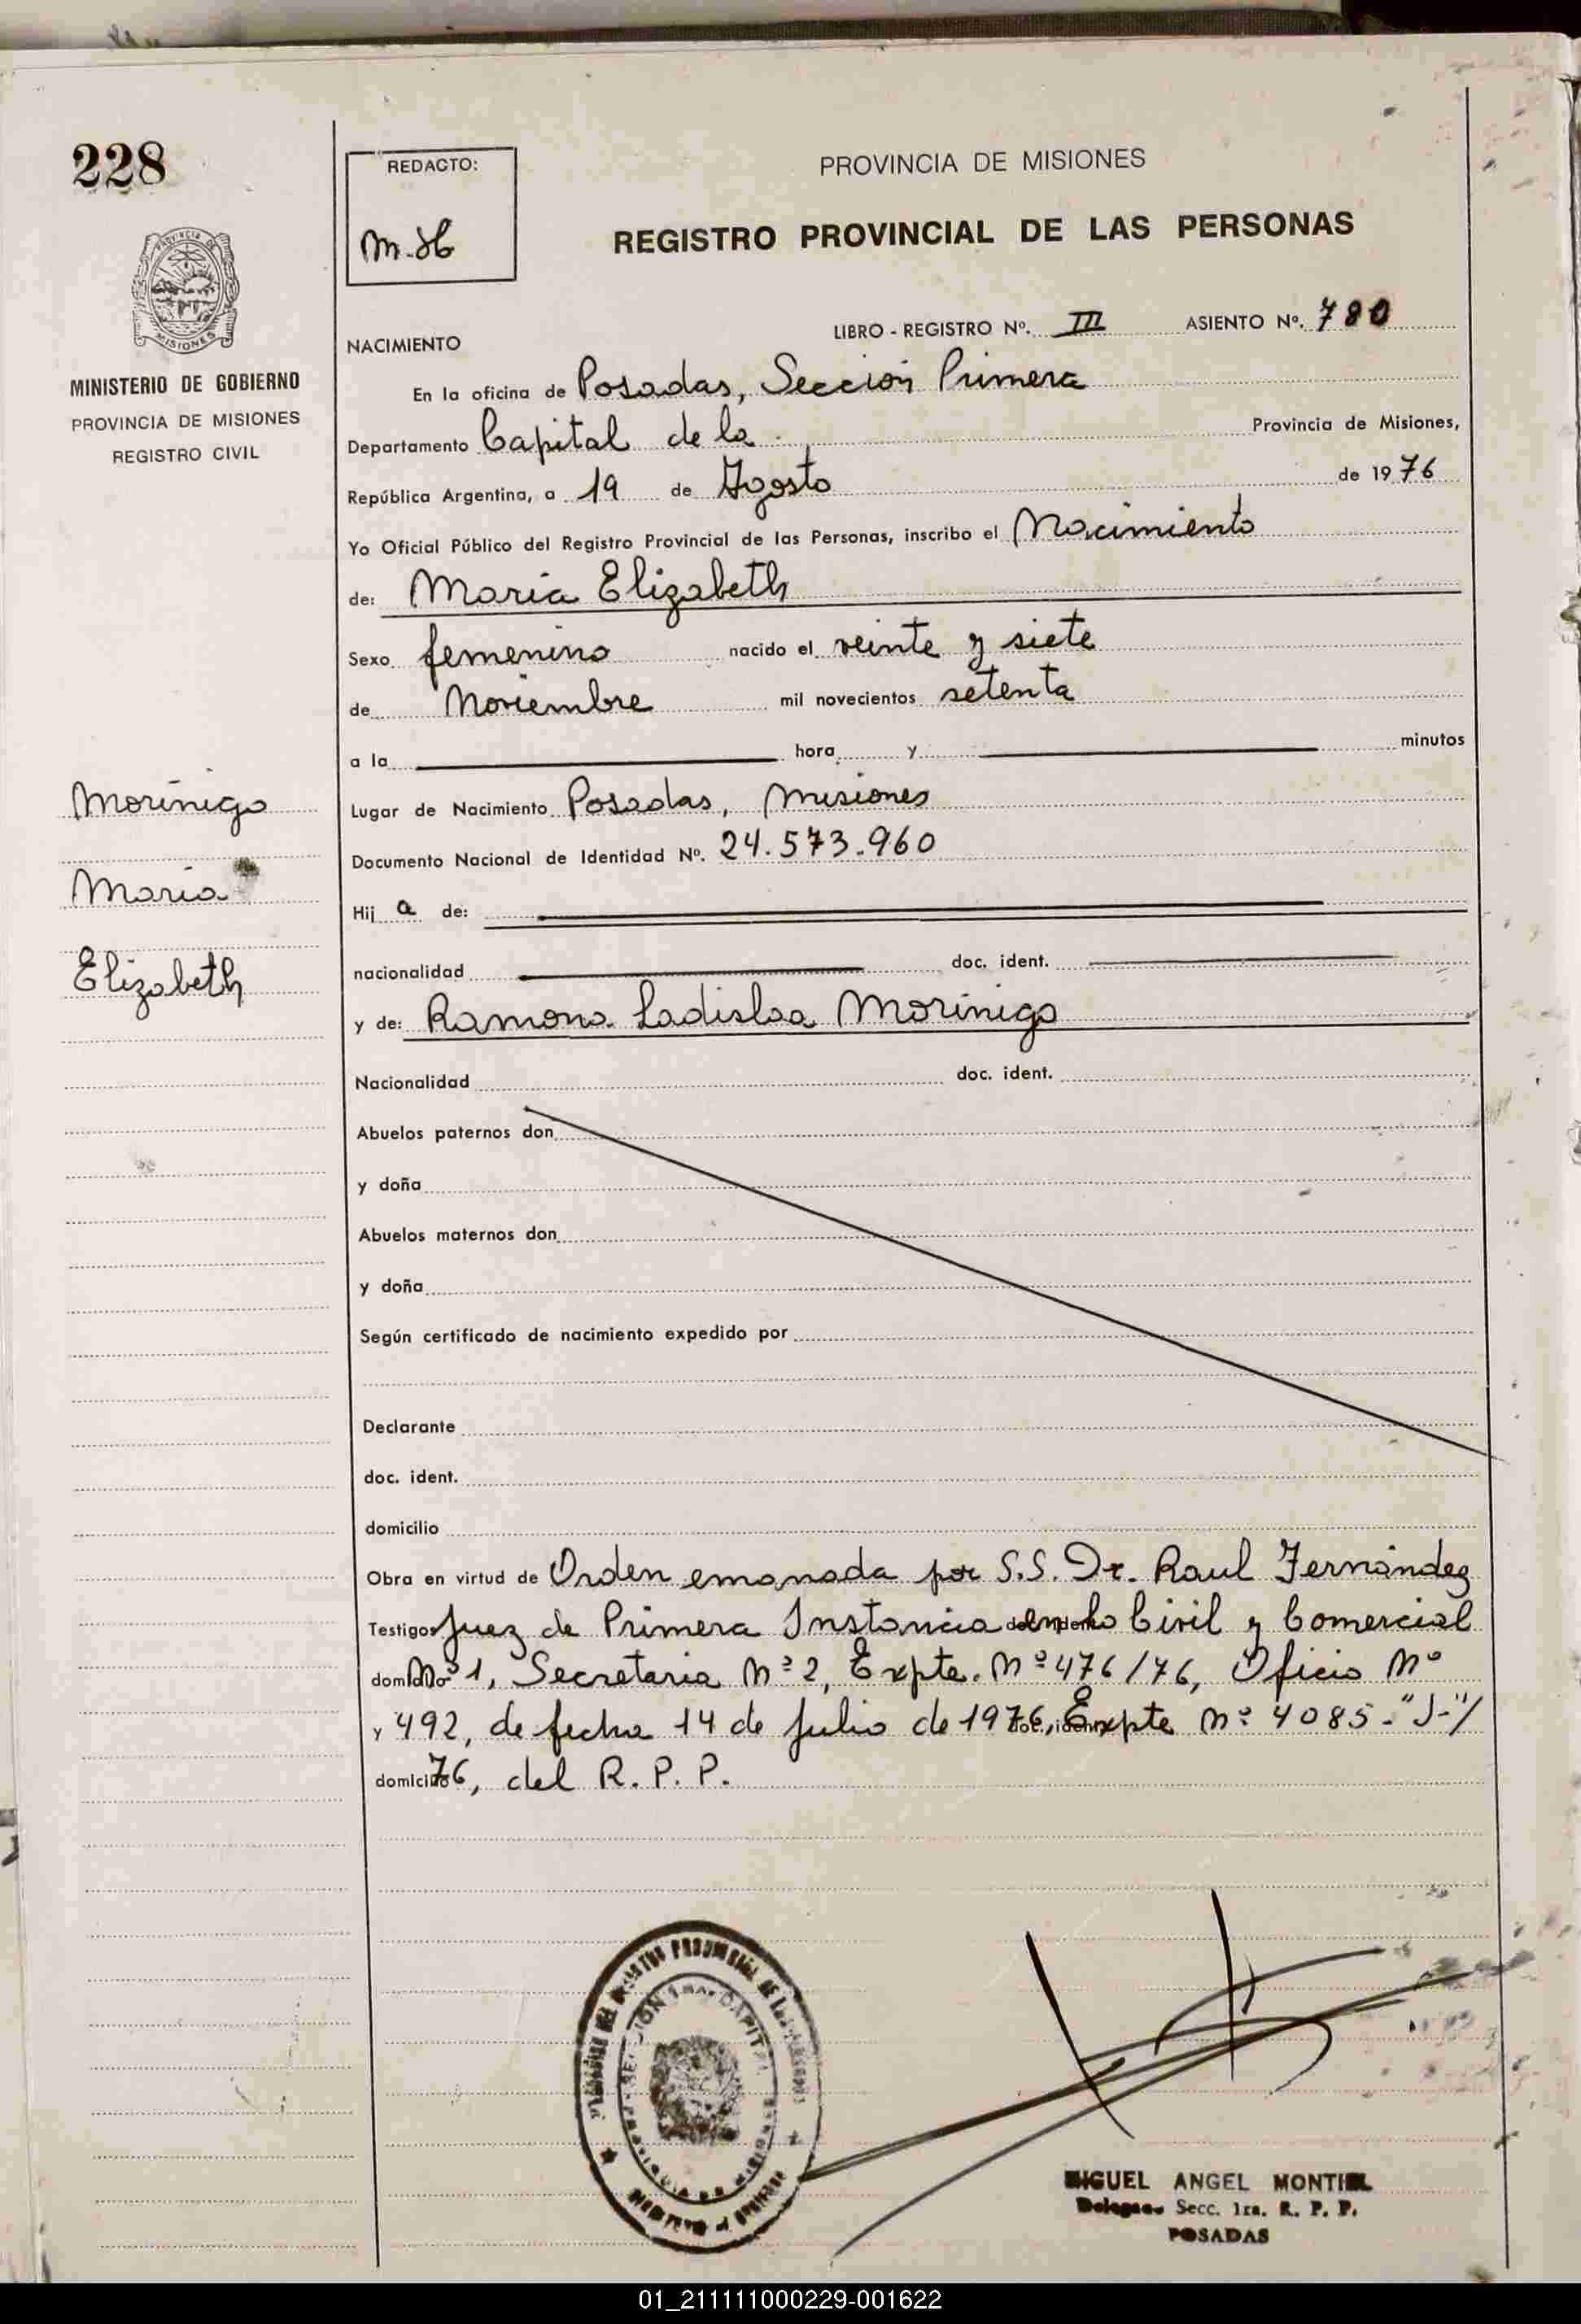 228
REDACTO:
M.H
PROVINCIA DE MISIONES
REGISTRO PROVINCIAL DE LAS PERSONAS
MINISTERIO DE GOBIERNO
PROVINCIA DE MISIONES
REGISTRO CIVIL
NACIMIENTO
LIBRO - REGISTRO Nº. III ASIENTO Nº. 780
En la oficina de Posadas, Sección Primera
Departamento Capital de la Provincia de Misiones,
República Argentina, a 19 de Agosto de 1976
Yo Oficial Público del Registro Provincial de las Personas, inscribo el Nacimiento
de: María Elizabeth
Sexo femenino nacido el veinte y siete
de Noviembre mil novecientos setenta
a la hora y minutos
Morínigo
María
Elizabeth
Lugar de Nacimiento Posadas, Misiones
Documento Nacional de Identidad Nº. 24.573.960
Hij a de:
nacionalidad doc. ident.
y de: Ramona Ladislaa Morínigo
Nacionalidad doc. ident.
Abuelos paternos don
y doña
Abuelos maternos don
y doña
Según certificado de nacimiento expedido por
Declarante
doc. ident.
domicilio
Obra en virtud de Orden emanada por S.S. Dr. Raul Fernández
Testigos Juez de Primera Instancia en lo Civil y Comercial
Nº 1, Secretaria Nº 2, Expte. Nº 476/76, Oficio Nº
y 492, de fecha 14 de Julio de 1976, Expte Nº 4085-"J-"/
domicilio 76, del R. P. P.
MIGUEL ANGEL MONTIEL
Delegado Secc. 1ra. R. P. P.
POSADAS
01_211111000229-001622